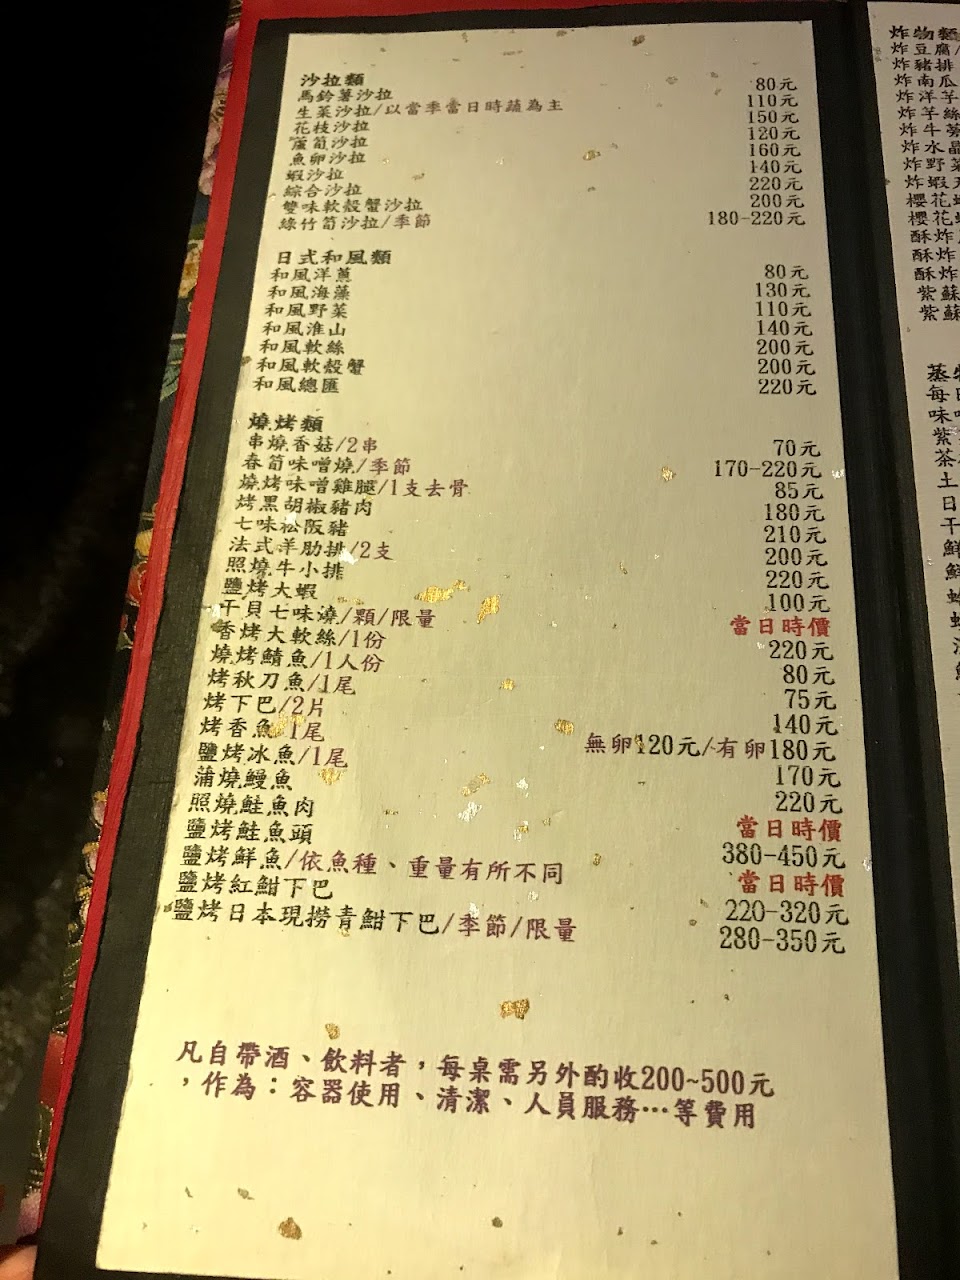 沙拉類
馬鈴薯沙拉 80元
生菜沙拉/以當季當日時蔬為主 110元
花枝沙拉 150元
蘆筍沙拉 120元
魚卵沙拉 160元
蝦沙拉 140元
綜合沙拉 220元
雙味軟殼蟹沙拉 200元
綠竹筍沙拉/季節 180-220元
日式和風類
和風洋蔥 80元
和風海藻 130元
和風野菜 110元
和風淮山 140元
和風軟絲 200元
和風軟殼蟹 200元
和風總匯 220元
燒烤類
串燒香菇/2串 70元
春筍味噌燒/季節 170-220元
燒烤味噌雞腿/1支去骨 85元
烤黑胡椒豬肉 180元
七味松阪豬 210元
法式羊肋排/2支 200元
照燒牛小排 220元
鹽烤大蝦 100元
干貝七味燒/顆/限量 當日時價
香烤大軟絲/1份 220元
燒烤鯖魚/1人份 80元
烤秋刀魚/1尾 75元
烤下巴/2片 140元
烤香魚 1尾 無卵120元/有卵180元
鹽烤冰魚/1尾 170元
蒲燒鰻魚 220元
照燒鮭魚肉 當日時價
鹽烤鮭魚頭 380-450元
鹽烤鮮魚/依魚種、重量有所不同 當日時價
鹽烤紅魽下巴 220-320元
鹽烤日本現撈青魽下巴/季節/限量 280-350元
凡自帶酒、飲料者，每桌需另外酌收200~500元
，作為：容器使用、清潔、人員服務…等費用
炸物類
炸豆腐/
炸豬排
炸南瓜
炸洋芋
炸芋絲
炸牛蒡
炸水晶
炸野菜
炸蝦
櫻花蝦
櫻花蝦
酥炸
酥炸
酥炸
紫蘇
紫蘇
蒸物
每日
味
紫
茶
土
日
干
鮮
鮮